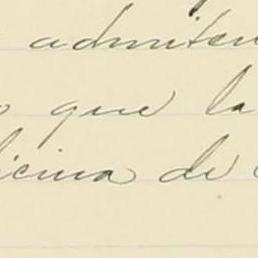 admiten
que la
icina de